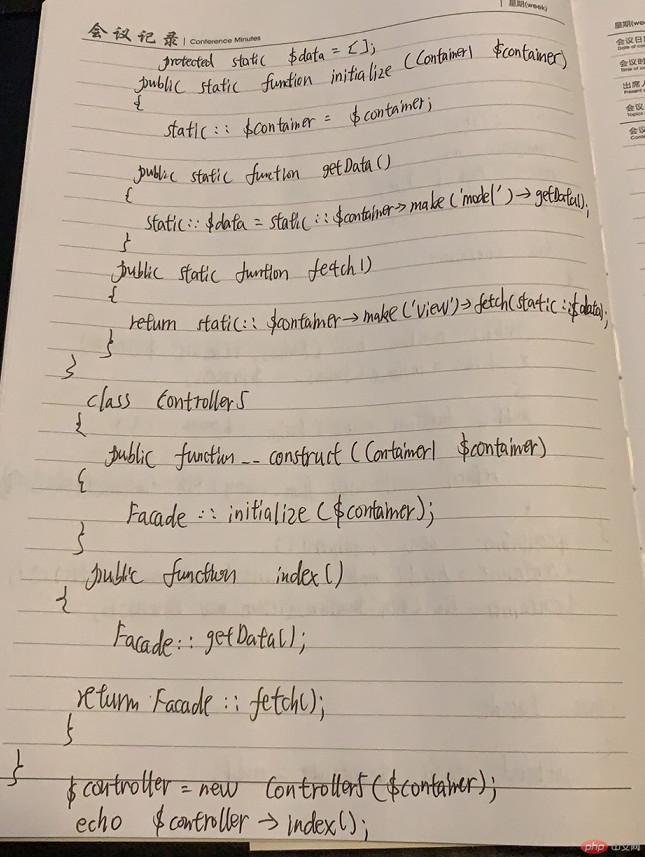 星期(week)
会议记录 | Conference Minutes
protected static $data = [];
public static function initialize (Container1 $container)
{
static:: $container = $container;
public static function getData()
{
static:: $data = static:: $container->make('model')->getData();
}
public static function fetch()
{
return static:: $container->make('view')->fetch(static::$data);
}
}
class Controller5
{
public function __construct (Container1 $container)
{
Facade :: initialize ($container);
}
public function index()
{
Facade:: getData();
return Facade :: fetch();
}
}
$controller = new Controller5($container);
echo $controller -> index();
出席人
php中文网